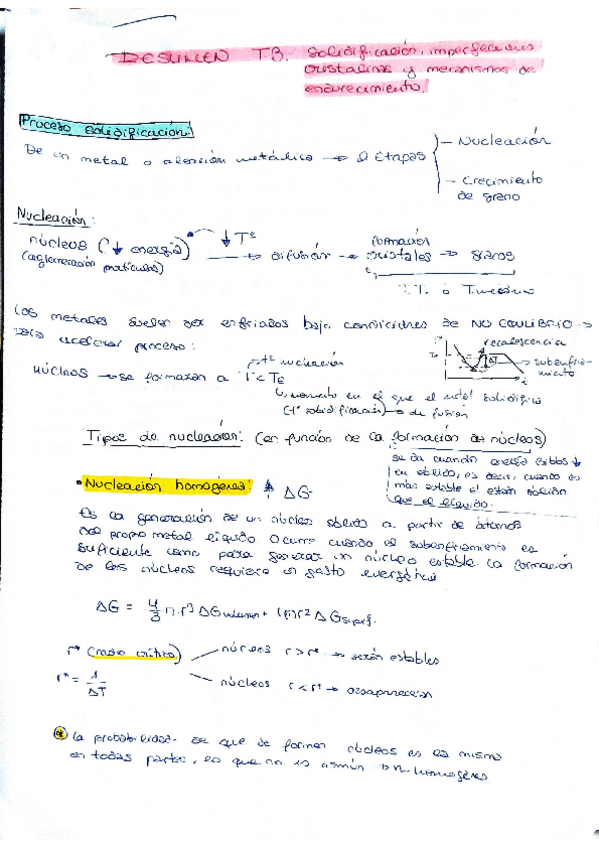 RESUMEN T3. Solidificación, imperfecciones
cristalinas y mecanismos de
endurecimiento.
Proceso solidificación:
De un metal o aleación metálica → 2 Etapas
— Nucleación
— Crecimiento
de grano
Nucleación:
núcleos (↓ energía) ↓ Tª → difusión → formación cristales → granos
(aglomeración partículas)
Los metales suelen ser enfriados bajo condiciones de NO EQUILIBRIO →
para acelerar proceso:
recalescencia
subenfria-
miento
núcleos → se formarán a T < TE
tª nucleación
momento en el que el metal solidifica
(Tª solidificación) → de fusión
Tipos de nucleación: (en función de la formación de núcleos)
se da cuando energía
en sólido, es decir, cuando es
más estable el estado sólido
que el líquido.
• Nucleación homogénea: ΔG
Es la generación de un núcleo sólido a partir de átomos
del propio metal líquido Ocurre cuando el subenfriamiento es
suficiente como para generar un núcleo estable La formación
de los núcleos requiere un gasto energético
ΔG = 4/3 π r³ ΔG volumen + 4πr² ΔG superf.
r* (radio crítico)
núcleos r > r* → serán estables
r* = 1/ΔT
núcleos r < r* → desaparecerán
La probabilidad de que se formen núcleos es la misma
en todas partes, lo que no es común n. homogénea